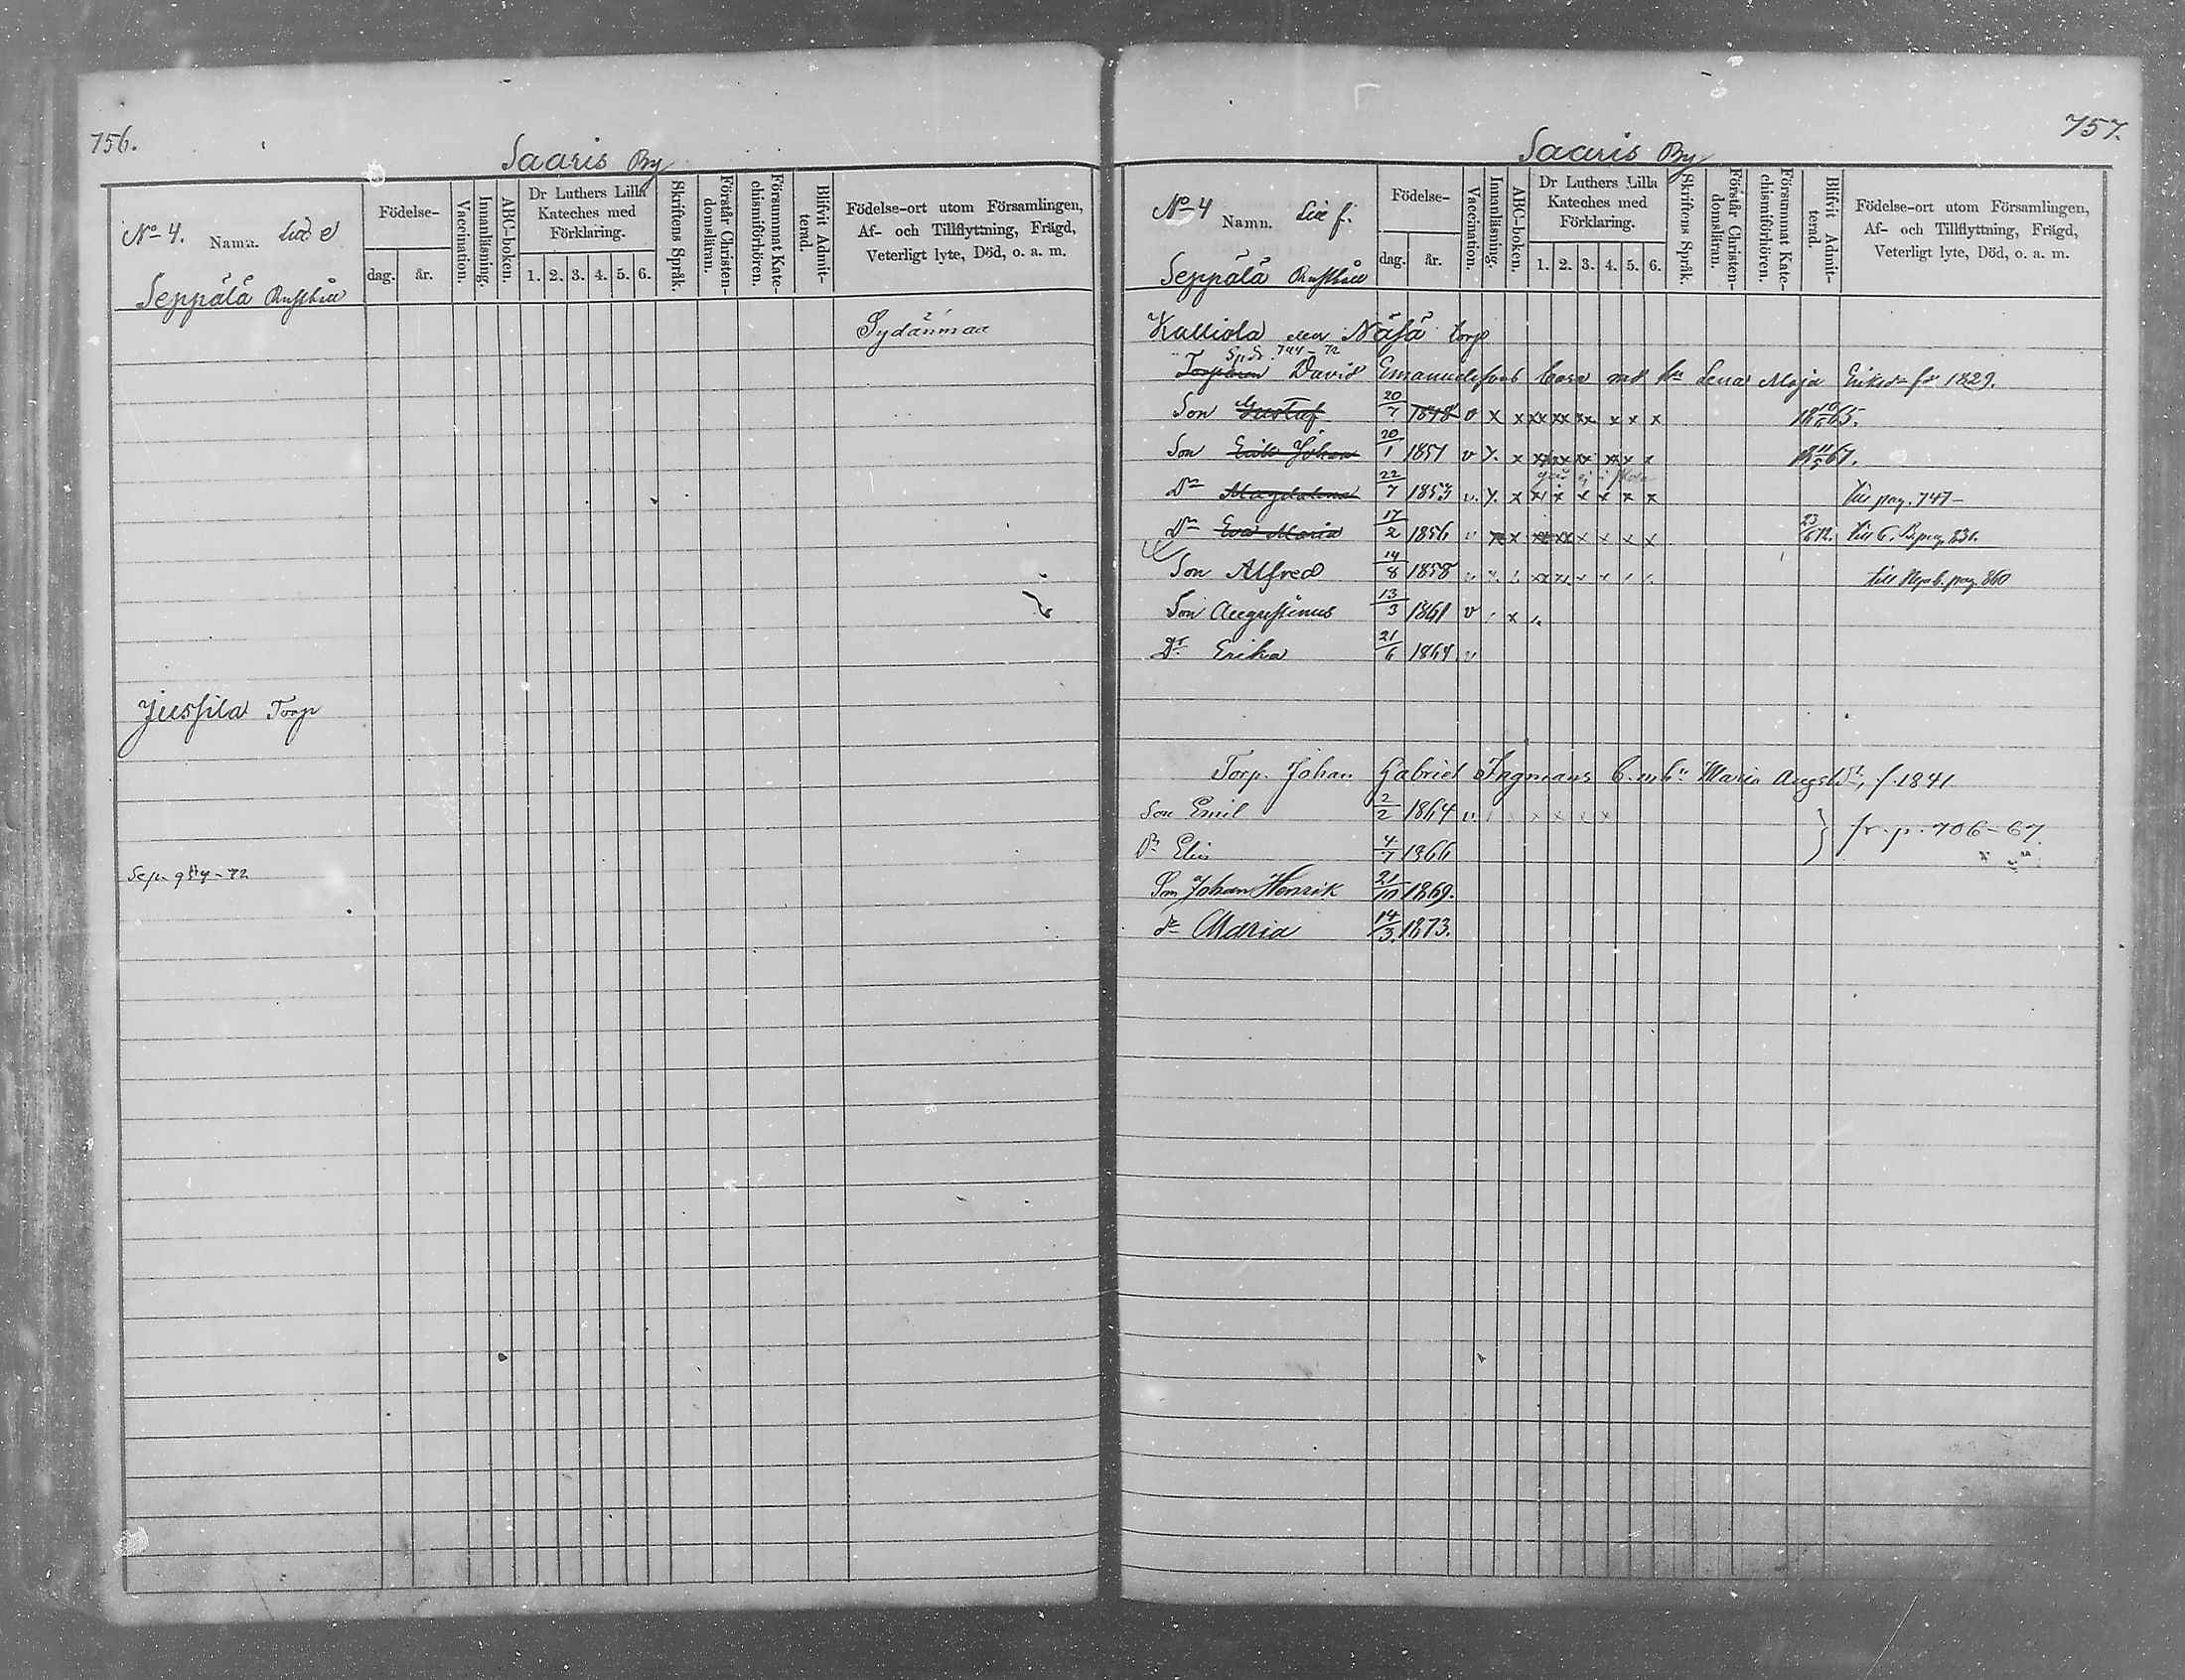 756.
Saaris By
No 4. Namn. Litt e
Födelse-
dag. år.
Vaccination.
Innanläsning.
ABC-boken.
Dr Luthers Lilla Kateches med Förklaring.
1. 2. 3. 4. 5. 6.
Skriftens Språk.
Förstår Christen-domsläran.
Försummat Kate-chismiförhören.
Blifvit Admit-terad.
Födelse-ort utom Församlingen,
Af- och Tillflyttning, Frägd,
Veterligt lyte, Död, o. a. m.
Seppälä Rusthåll
Sydänmaa
Jussila Torp
757.
Saaris By
No 4 Namn. Litt f.
Födelse-
dag. år.
Vaccination.
Innanläsning.
ABC-boken.
Dr Luthers Lilla Kateches med Förklaring.
1. 2. 3. 4. 5. 6.
Skriftens Språk.
Förstår Christen-domsläran.
Försummat Kate-chismiförhören.
Blifvit Admit-terad.
Födelse-ort utom Församlingen,
Af- och Tillflyttning, Frägd,
Veterligt lyte, Död, o. a. m.
Seppälä Rusthåll
Kalliola eller Näsä torp
744-72
Torparen David Emanuelsons barn md hu Lena Maja Eriksdr fd 1829.
Son Gustaf 20/7 1848 v x x xx xx xx x x x
Son Erik Johan 20/1 1851 v x x xx xx xx xx x x
Dr Magdalena 22/7 1853 v x x x x x x x x till pag. 747-
Dr Eva Maria 17/2 1856 v x x xx xx x x x x 23/6 72.
Son Alfred 14/8 1858 till Nya b. pag. 860
Son Augustinus 13/3 1861 v x
Dr Erika 21/6 1864 v
Torp. Johan Gabriel Ingmans b. m hu Maria Augsdr, f. 1841
Son Emil 2/2 1864 v. x x x x
fr. p. 706-67
Dr Elis 4/7 1866
Son Johan Henrik 21/10 1869.
dr Maria 14/3. 1873.